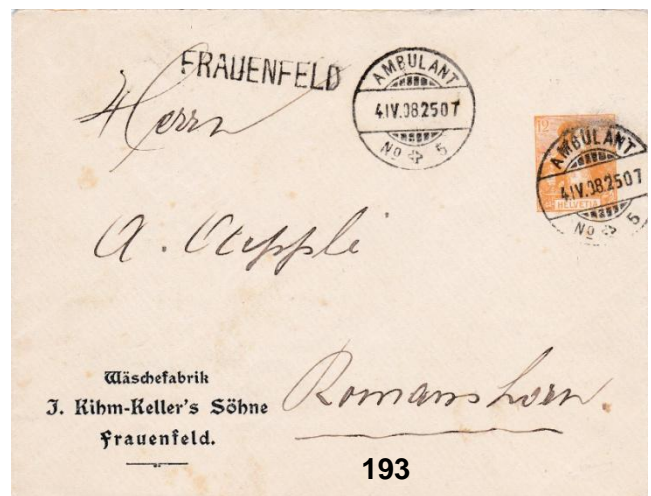 FRAUENFELD
AMBULANT
4IV.08.2507
No 5
12
AMBULANT
4IV.08.2507
HELVETIA
No 5
Herrn
A. Aeppli
Romanshorn.
Wäschefabrik
J. Kihm-Keller's Söhne
Frauenfeld.
193